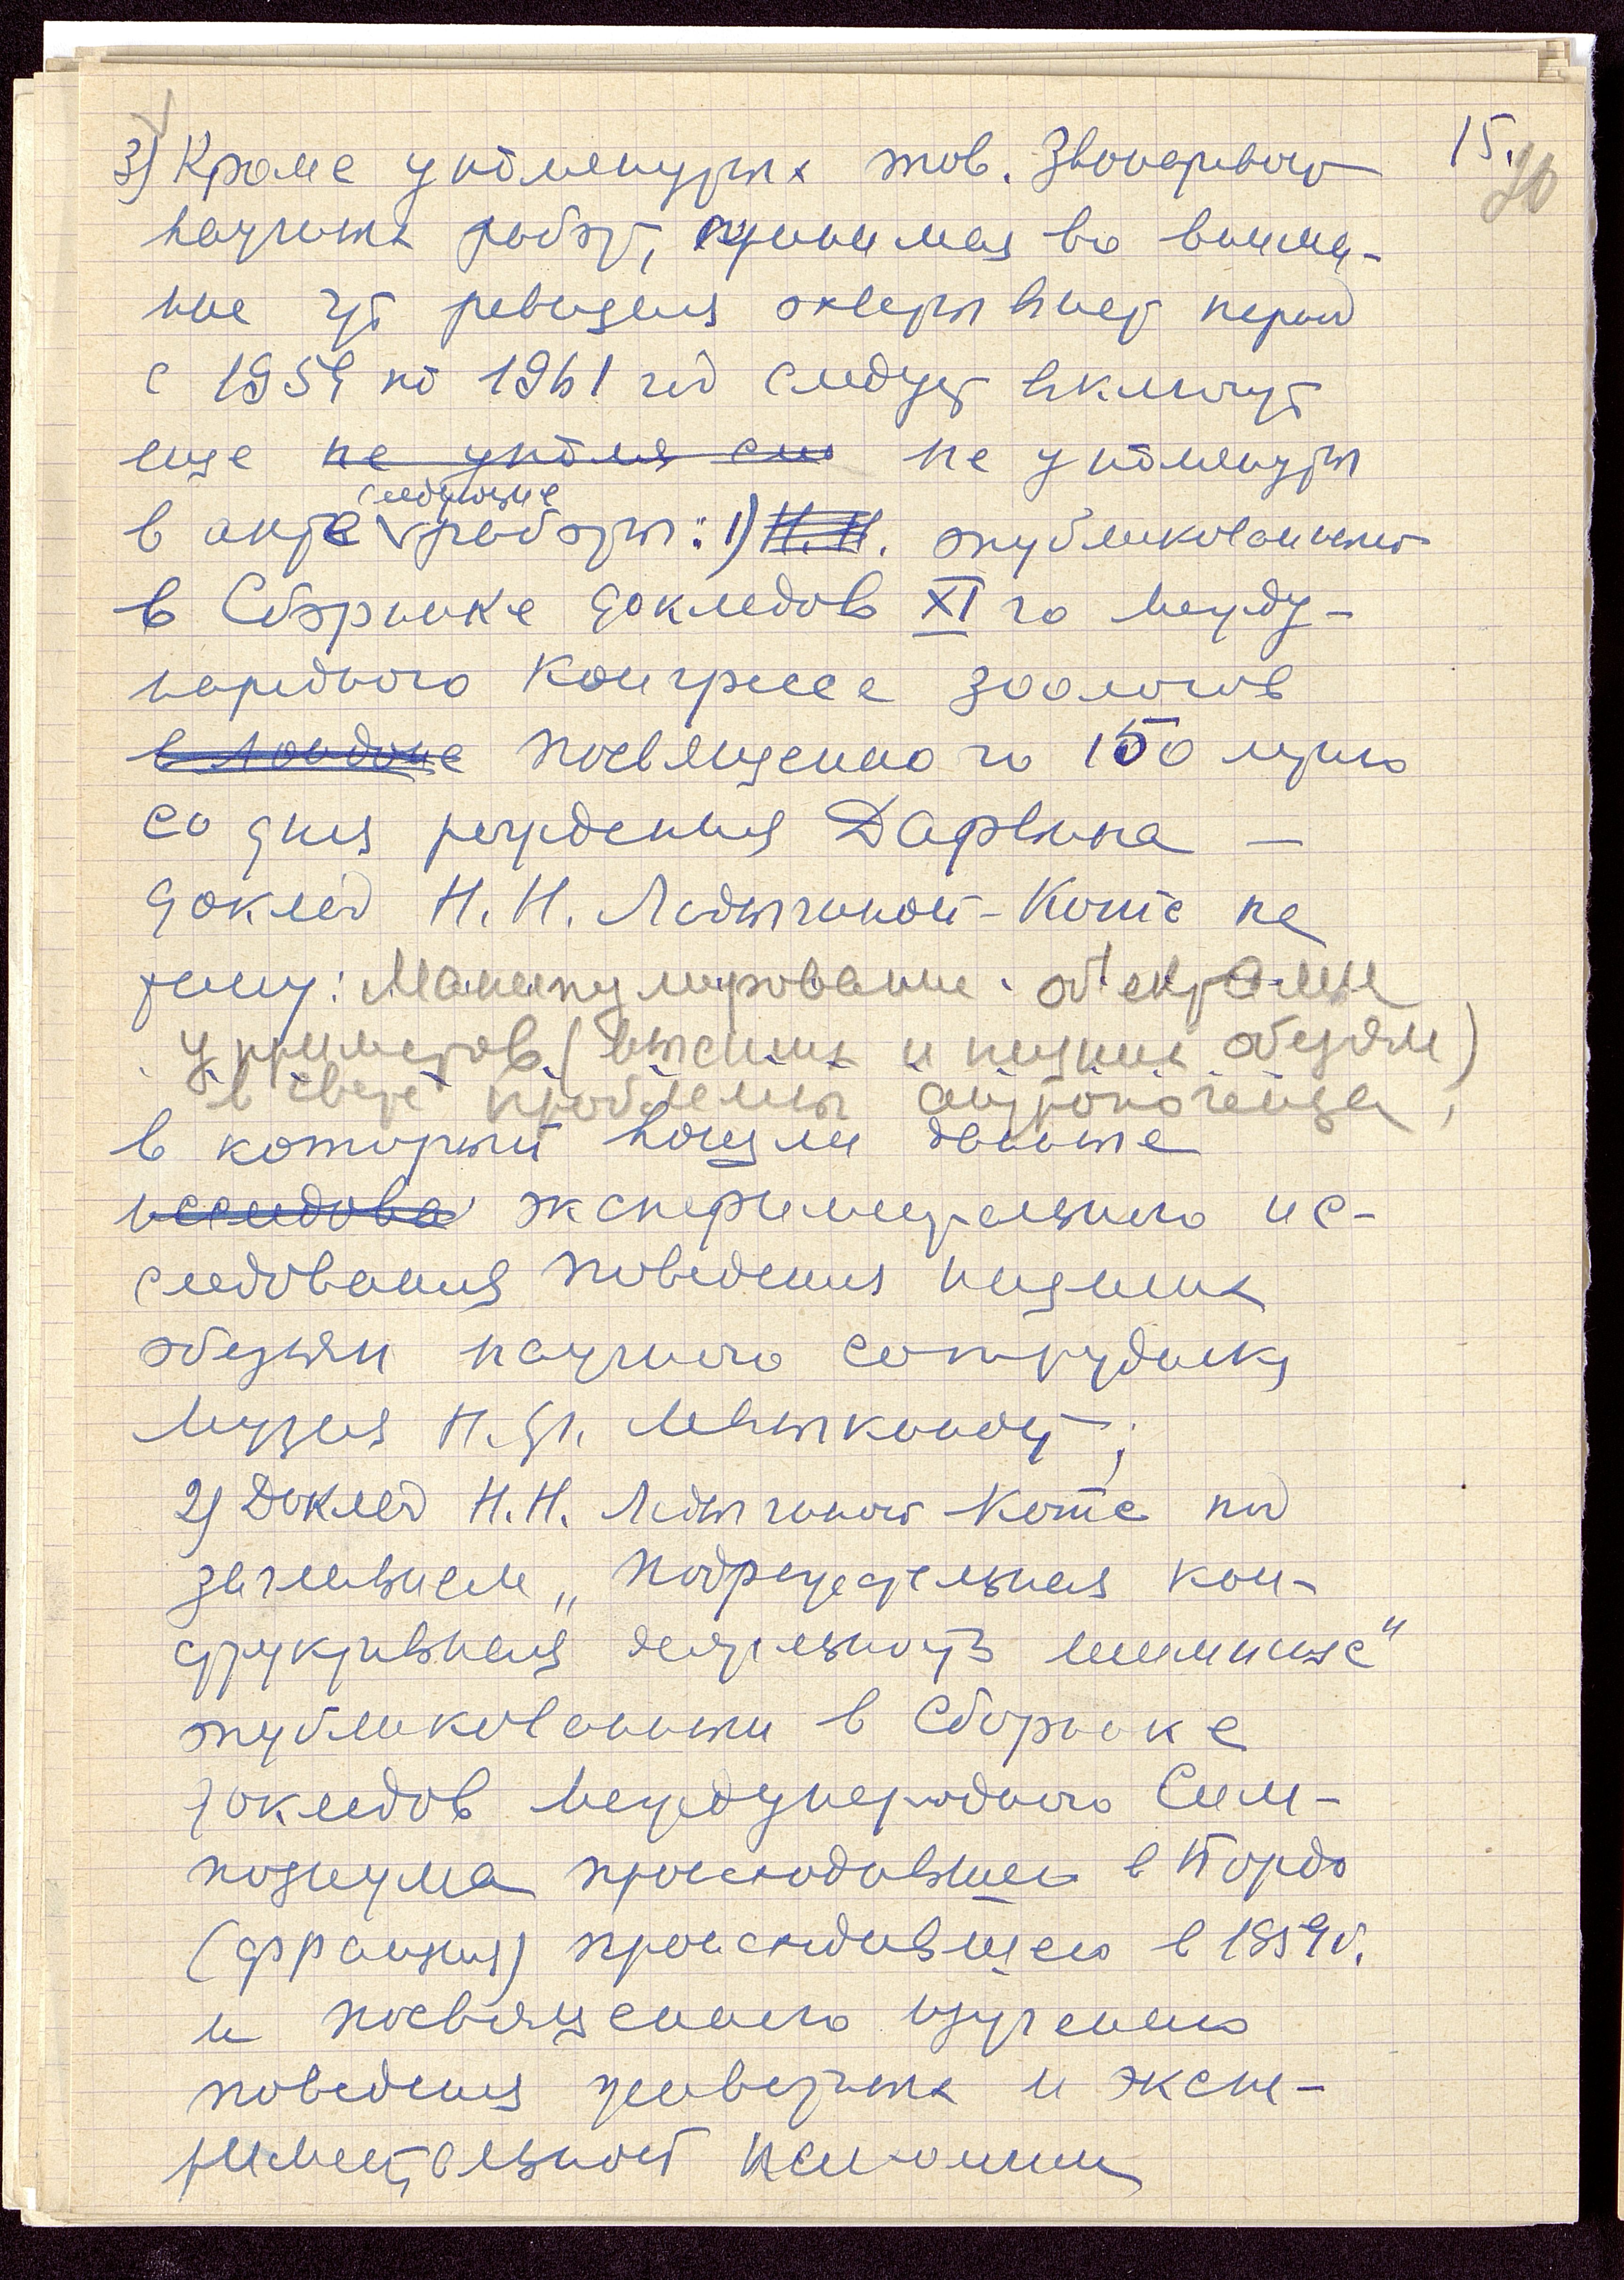 15.
3) Кроме упомянутых тов. Звонаревого
научных работ, принимая во внима-
ние что ревизия охватывает период
с 1959 по 1961 год следует включить
еще не упомя не упомянуты
следующие
в акте работы: 1) Н.Н. опубликованного
в Сборнике докладов XI го Между-
народного Конгресса зоологов
в Лондоне посвященного 150 летию
со дня рождения Дарвина —
доклад Н.Н. Ладыгиной-Котс на
тему: Манипулирование об'ектами
у приматов (высших и низших обезьян)
в свете проблемы антропогенеза,
в который вошли данные
исследова экспериментального ис-
следования поведения низших
обезьян научного сотрудника
Музея Н.Я. Мешковой;
2) Доклад Н.Н. Ладыгиной Котс под
заглавием „Подражательная кон-
структивная деятельность шимпанзе"
опубликованный в Сборнике
докладов Международного Сим-
позиума происходившем в Бордо
(Франция) происходившего в 1959 г.
и посвященного изучению
поведения животных и экспе-
риментальной психологии